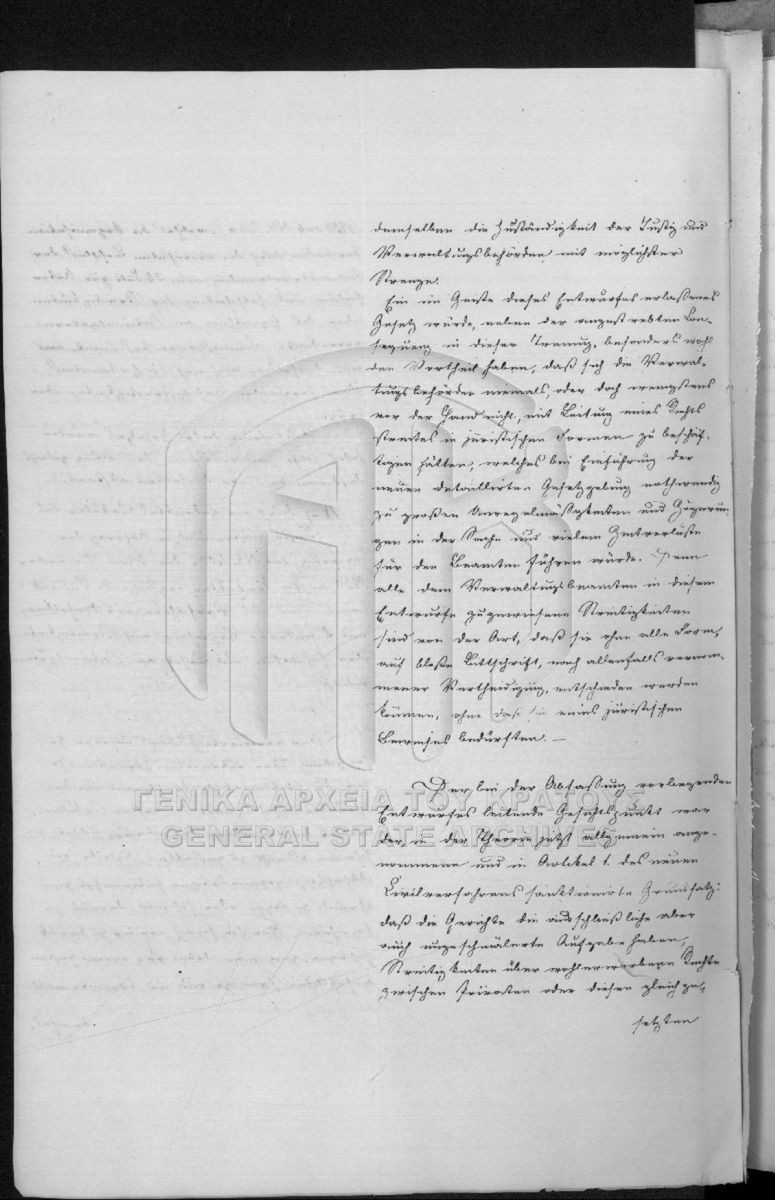 demselben die Zuständigkeit der Justiz und
Verwaltungsbehörden mit möglichster
Strenge.
Ein im Geiste dieses Entwurfes erlassenes
Gesetz würde, neben der angestrebten Con-
sequenz in dieser Trennung, besonders wohl
den Vortheil haben, daß sich die Verwal-
tungsbehörden niemals, oder doch wenigstens
vor der Hand nicht, mit Leitung eines Rechts
streites in juristischen Formen zu beschäf-
tigen hätten, welches bei Einführung der
neuen detaillirten Gesetzgebung nothwendig
zu großen Unregelmäßigkeiten und Zögerun
gen in der Sache und vielem Zeitverluste
für den Beamten führen würde. Denn
alle dem Verwaltungsbeamten in diesem
Entwurfe zugewiesene Streitigkeiten
sind von der Art, daß sie ohne alle Form,
auf bloße Bittschrift, nach allenfalls vernom-
mener Vertheidigung, entschieden werden
können, ohne daß sie eines juristischen
Beweises bedürften. —
Der, bei der Abfassung vorliegenden
Entwurfes leitende Gesichtspunkt war
der, in der Theorie jetzt allgemein ange-
nommene und in Artikel 1. des neuen
Civilverfahrens sanktionirte Grundsatz:
daß die Gerichte die ausschließliche aber
auch ungeschmälerte Aufgabe haben,
Streitigkeiten über wohlerworbene Rechte
zwischen Privaten oder diesen gleichge-
setzten
ΓΕΝΙΚΑ ΑΡΧΕΙΑ ΤΟΥ ΚΡΑΤΟΥΣ
GENERAL STATE ARCHIVES